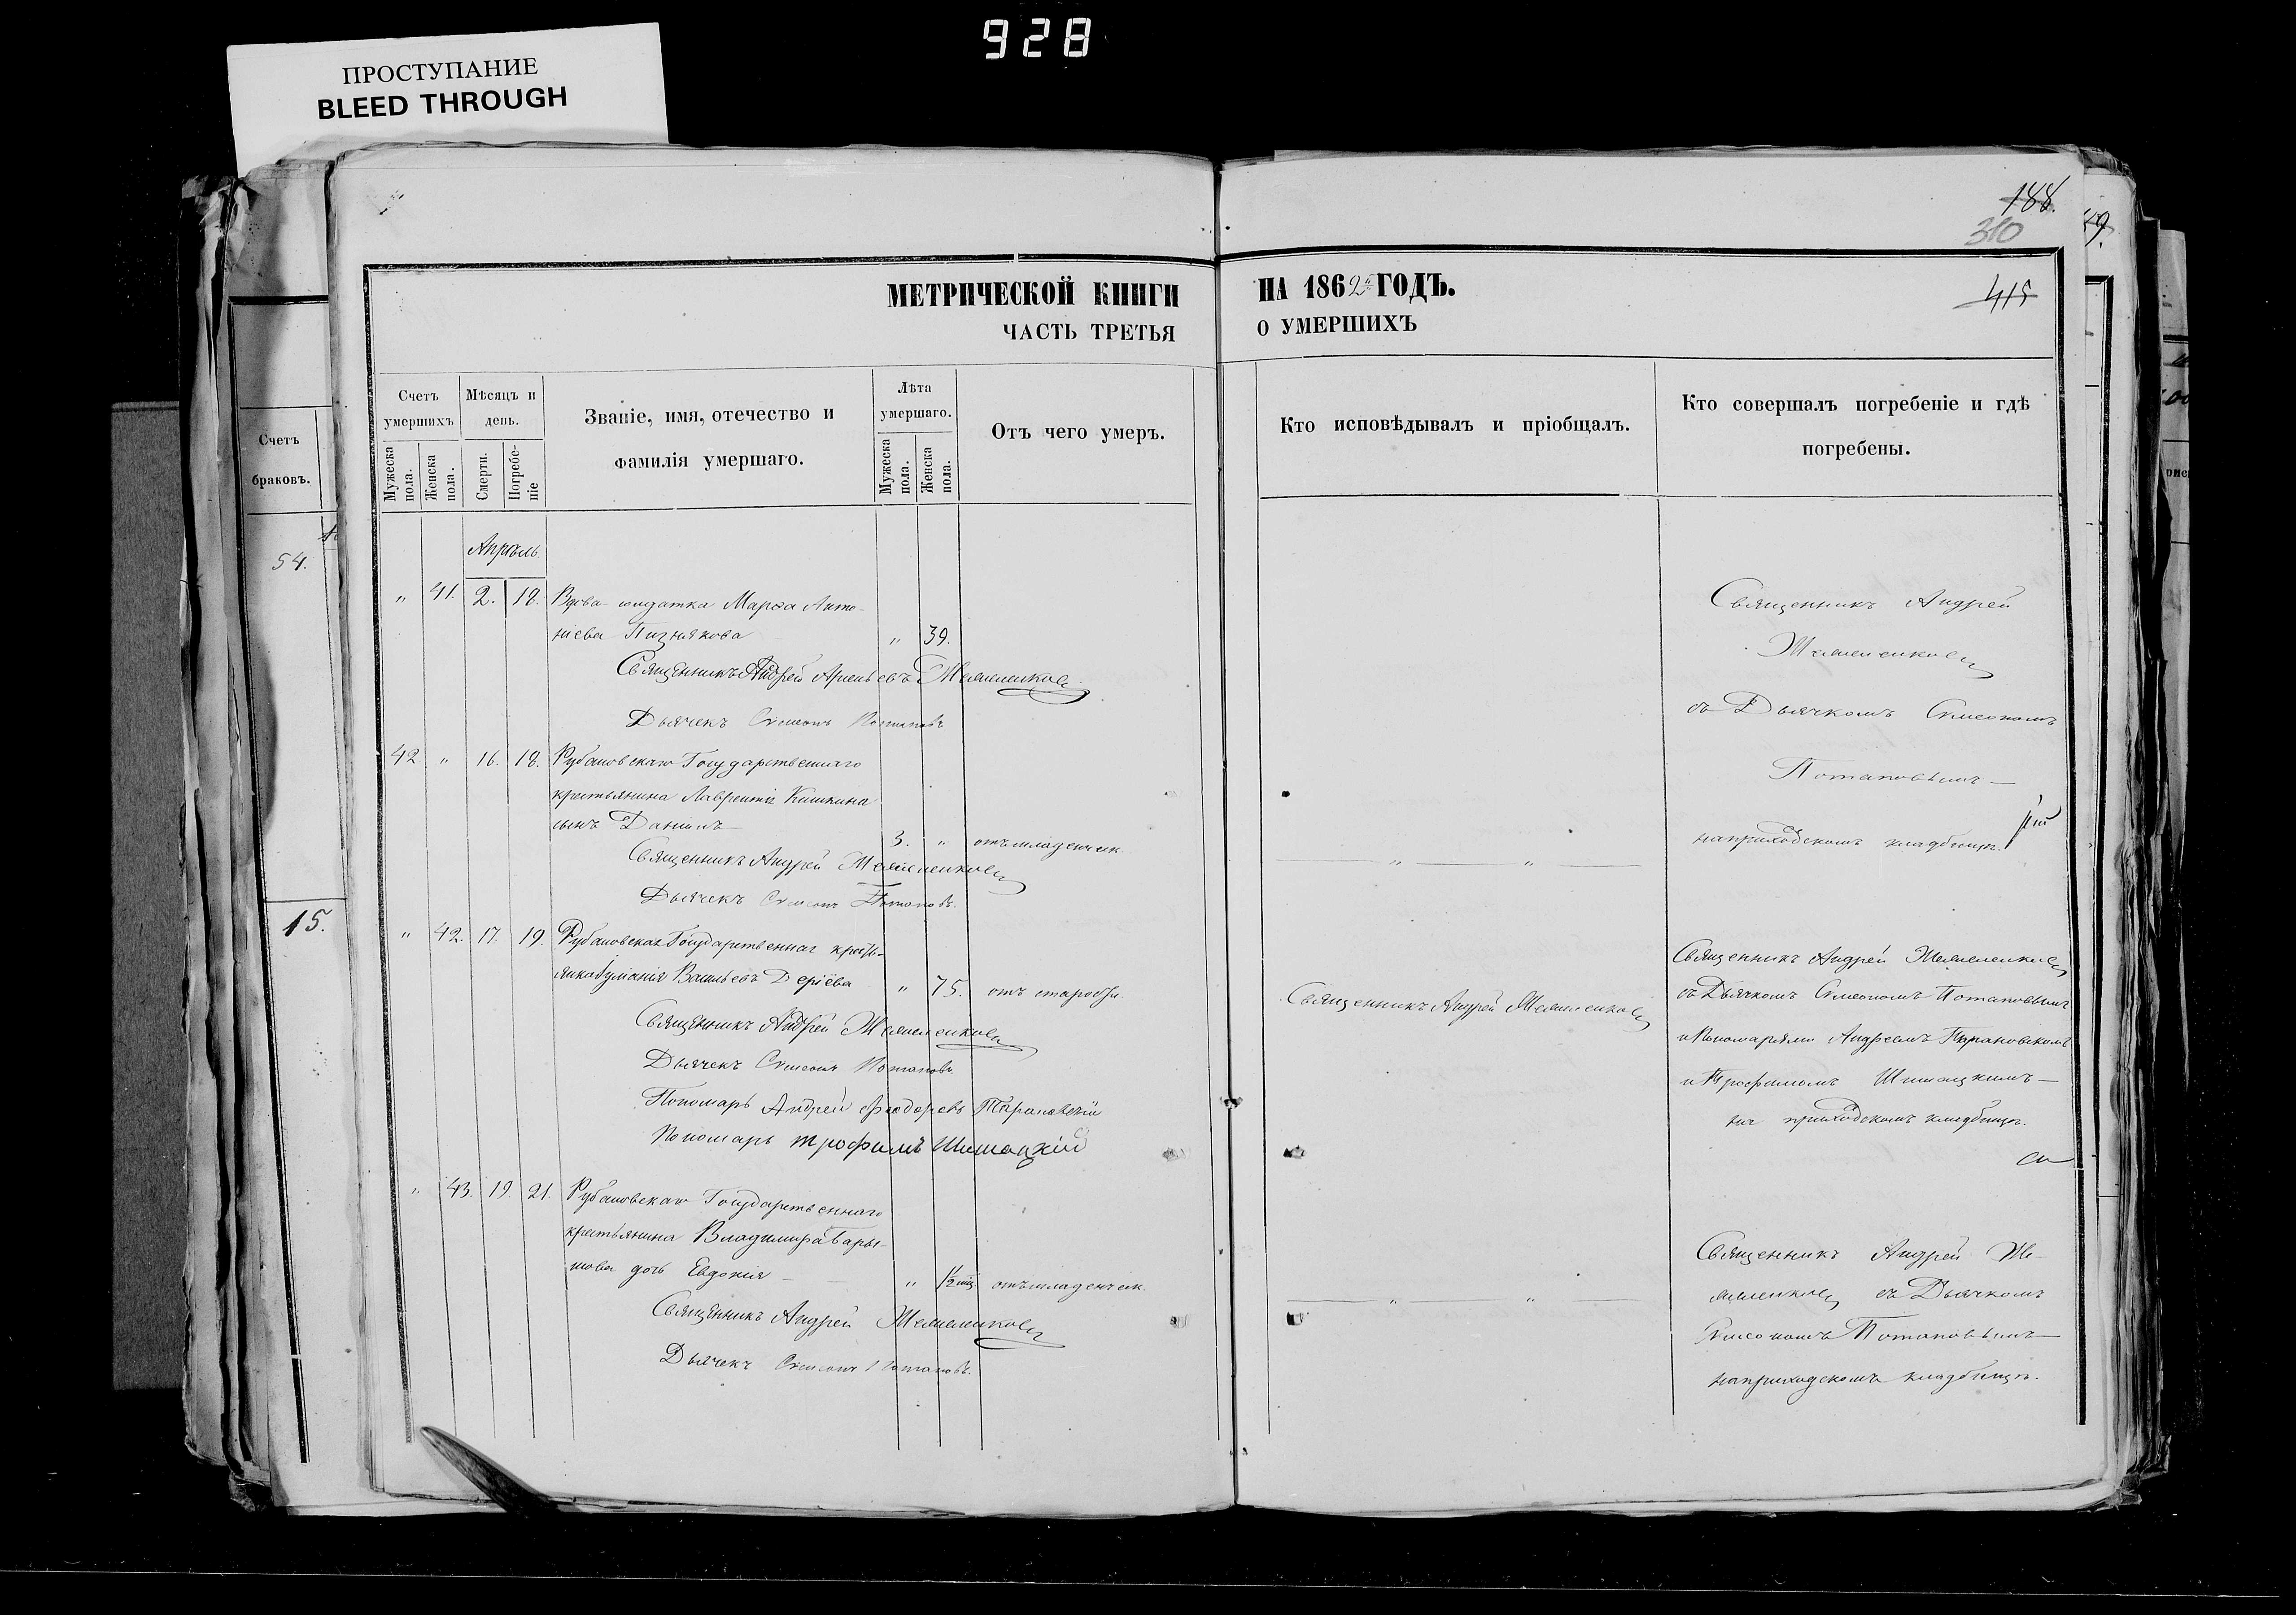 928
ПРОСТУПАНИЕ
BLEED THROUGH
188.
310
49.
415
МЕТРИЧЕСКОЙ КНИГИ НА 1862й ГОДЪ.
ЧАСТЬ ТРЕТЬЯ О УМЕРШИХЪ
Счетъ
браковъ.
54.
15.
Счетъ умершихъ
Мужеска пола.
Женска пола.
Мѣсяцъ и день.
Смерти.
Погребеніе
Званіе, имя, отечество и
фамилія умершаго.
Лѣта умершаго.
Мужеска пола.
Женска пола.
Отъ чего умеръ.
Кто исповѣдывалъ и пріобщалъ.
Кто совершалъ погребеніе и гдѣ
погребены.
Апрѣль
„ 41. 2. 18. Вдова солдатка Марѳа Анто-
ніева Пизнякова „ 39.
Священникъ Андрей Арсеньевъ
Дьячекъ Симеонъ Потаповъ
Священникъ Андрей
съ Дьячкомъ Симеономъ
Потаповымъ
на приходскомъ кладбищѣ.
42 „ 16. 18. Рубановскаго Государственнаго
крестьянина Лаврентія Кишкина
сынъ Даніилъ 3. „ отъ младенческ.
Священникъ Андрей
Дьячекъ Симеонъ Потаповъ.
„ 42. 17. 19. Рубановская Государственная кресть-
янка Васильевъ Деріева „ 75. отъ старости.
Священникъ Андрей
Дьячекъ Симеонъ Потаповъ
Пономарь Андрей Феодоровъ Тарановскій
Пономарь Трофимъ Шишацкій
Священникъ Андрей
Священникъ Андрей
съ Дьячкомъ Симеономъ Потаповымъ
и Пономарями Андреемъ Тарановскимъ
и Трофимомъ Шишацкимъ
на приходскомъ кладбищѣ.
„ 43. 19. 21. Рубановскаго Государственнаго
крестьянина Владимира Бары-
шова дочь Евдокія „ ½ мц. отъ младенческ.
Священникъ Андрей
Дьячекъ Симеонъ Потаповъ.
Священникъ Андрей
съ Дьячкомъ
Симеономъ Потаповымъ
на приходскомъ кладбищѣ.